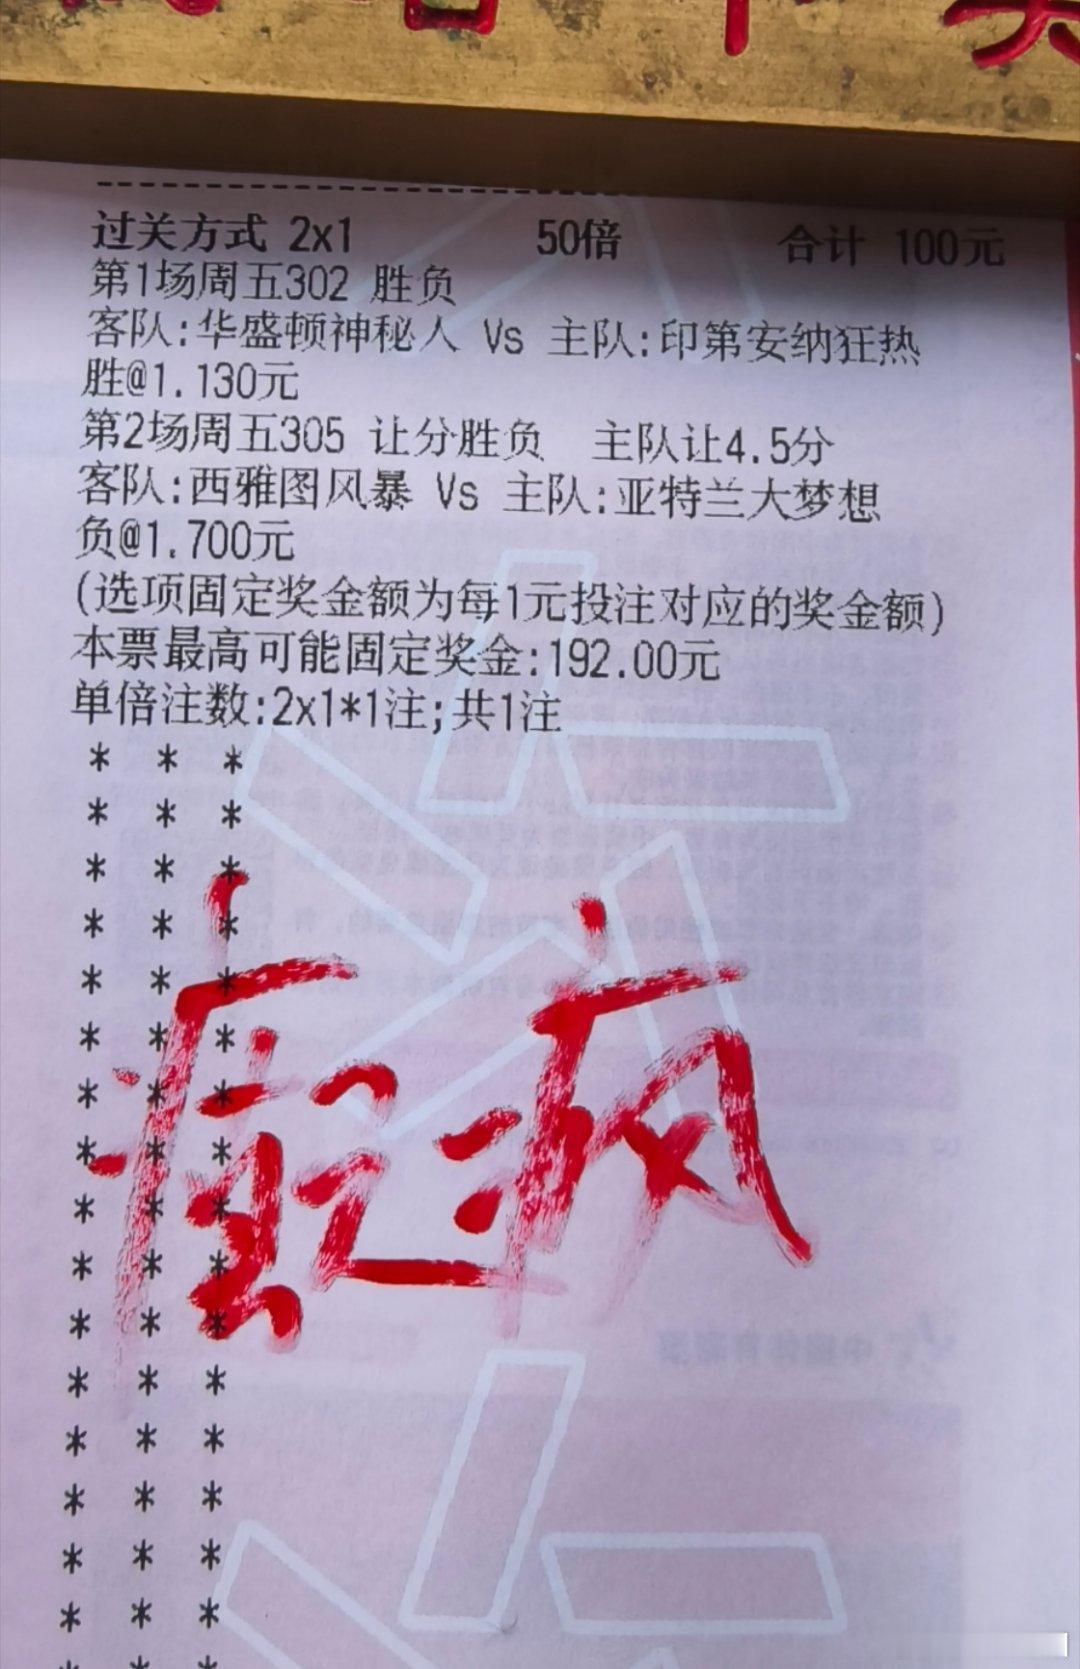 过关方式 2x1 50倍 合计 100元
第1场周五302 胜负
客队:华盛顿神秘人 Vs 主队:印第安纳狂热
胜@1.130元
第2场周五305 让分胜负 主队让4.5分
客队:西雅图风暴 Vs 主队:亚特兰大梦想
负@1.700元
(选项固定奖金额为每1元投注对应的奖金额)
本票最高可能固定奖金:192.00元
单倍注数:2x1*1注;共1注
* * *
* * *
* * *
* * *
* * *
* * *
* * *
* * *
* * *
* * *
* * *
* * *
* * *
* * *
* * *
* * *
* *
癫疯